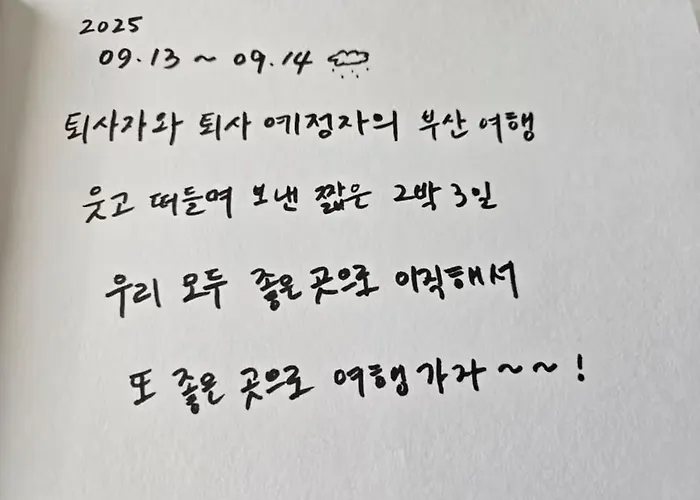 2025
09.13 ~ 09.14
퇴사자와 퇴사 예정자의 부산 여행
웃고 떠들며 보낸 짧은 2박 3일
우리 모두 좋은 곳으로 이직해서
또 좋은 곳으로 여행가자~~!